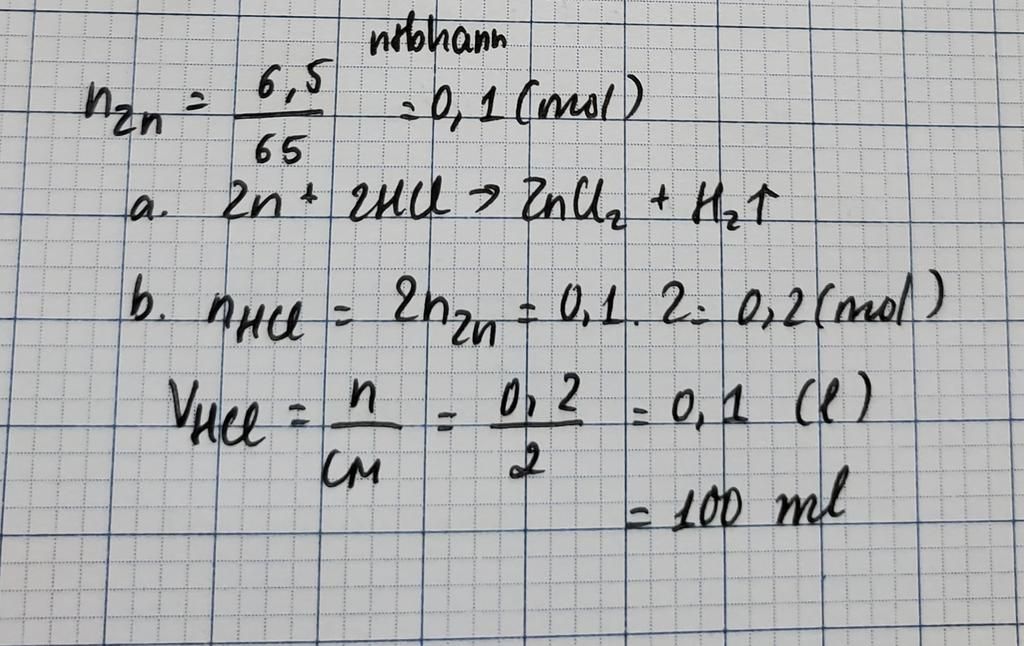 nHbhann
n_Zn = 6,5/65 = 0,1 (mol)
a. Zn + 2HCl → ZnCl₂ + H₂↑
b. n_HCl = 2n_Zn = 0,1 . 2 = 0,2 (mol)
V_HCl = n/CM = 0,2/2 = 0,1 (l)
= 100 ml